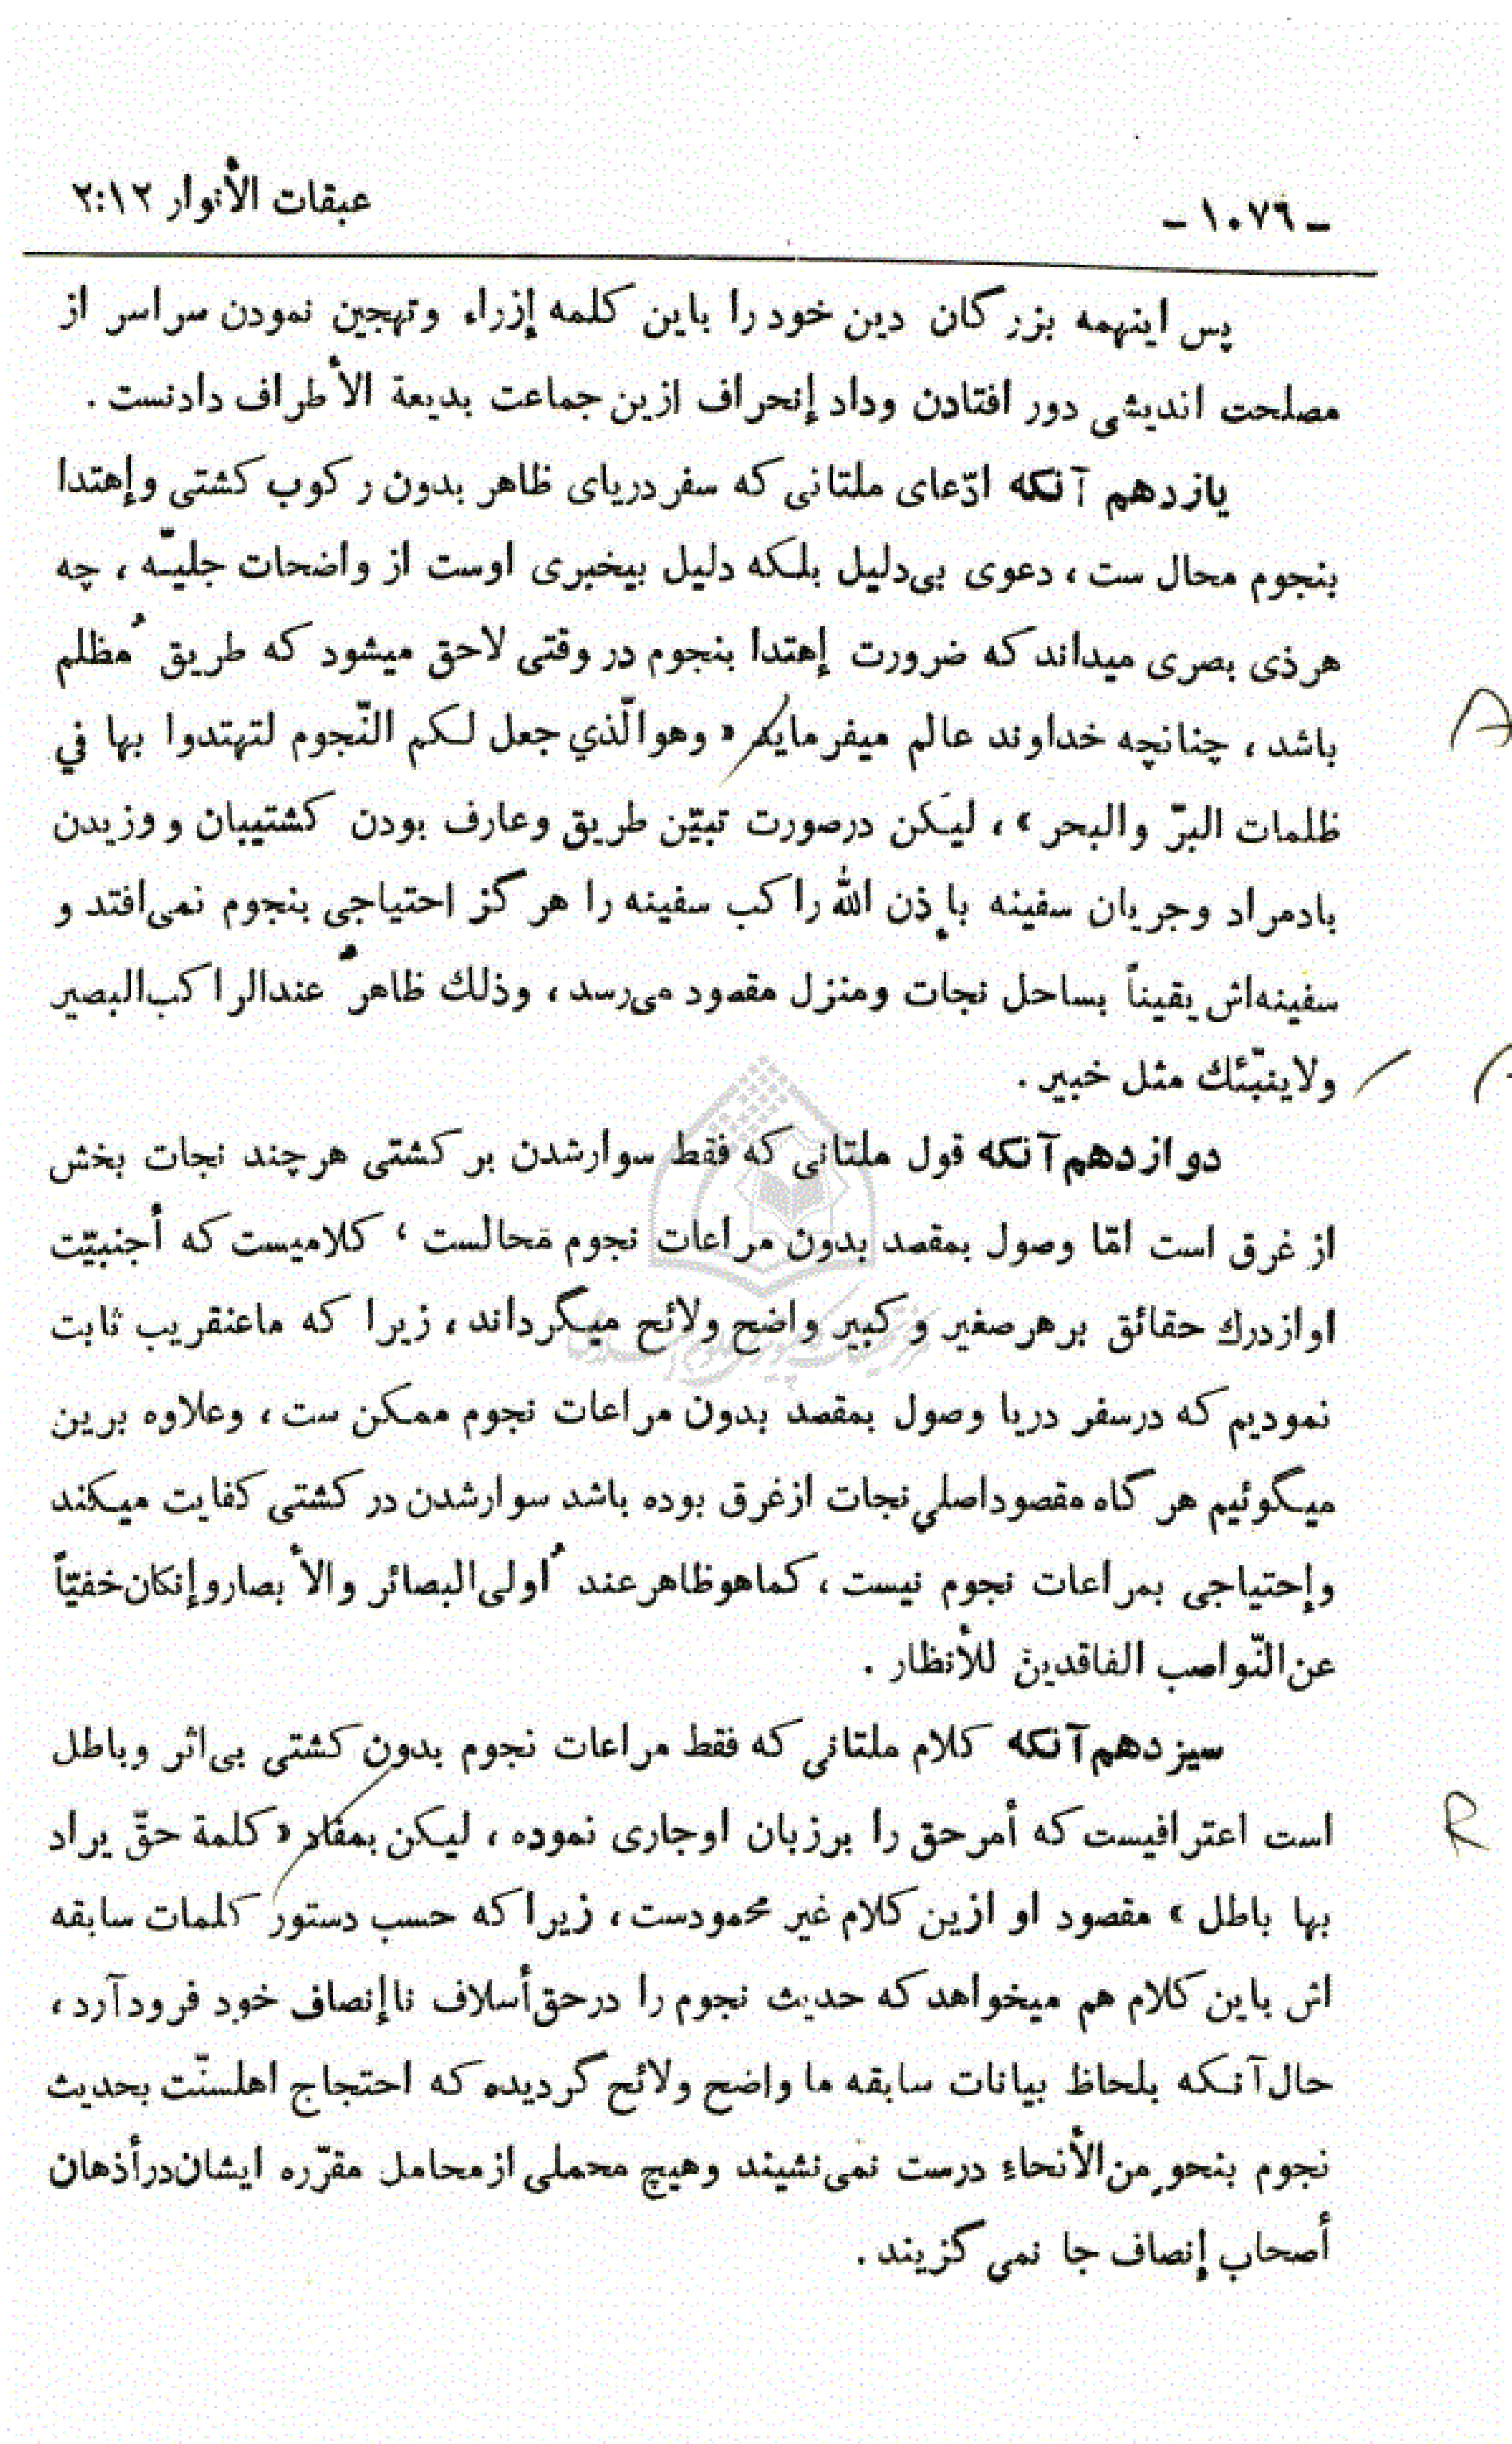 ـ ۱۰۷٦ ـ عبقات الأنوار ۲:۱۲
پس اینهمه بزرگان دین خود را باین کلمه إزراء وتهجین نمودن سراسر از
مصلحت اندیشی دور افتادن وداد إنحراف ازین جماعت بدیعة الأطراف دادنست .
یازدهم آنکه ادّعای ملتانی که سفر دریای ظاهر بدون رکوب کشتی وإهتدا
بنجوم محال ست ، دعوی بی‌دلیل بلکه دلیل بیخبری اوست از واضحات جلیّه ، چه
هر ذی بصری میداند که ضرورت إهتدا بنجوم در وقتی لاحق میشود که طریق مُظلم
باشد ، چنانچه خداوند عالم میفرماید « وهو الّذي جعل لكم النّجوم لتهتدوا بها في
ظلمات البرّ والبحر » ، لیکن درصورت تبیّن طریق وعارف بودن کشتیبان و وزیدن
بادمراد وجریان سفینه بإذن الله راکب سفینه را هرگز احتیاجی بنجوم نمی‌افتد و
سفینه‌اش یقیناً بساحل نجات ومنزل مقصود می‌رسد ، وذلك ظاهرٌ عندالراکب‌البصیر
ولاینبّئك مثل خبیر .
دوازدهم آنکه قول ملتانی که فقط سوارشدن بر کشتی هرچند نجات بخش
از غرق است امّا وصول بمقصد بدون مراعات نجوم مَحالست ، کلامیست که أجنبیّت
او ازدرك حقائق بر هرصغیر و کبیر واضح ولائح میگرداند ، زیرا که ماعنقریب ثابت
نمودیم که درسفر دریا وصول بمقصد بدون مراعات نجوم ممکن ست ، وعلاوه برین
میگوئیم هر گاه مقصوداصلی نجات ازغرق بوده باشد سوارشدن در کشتی کفایت میکند
وإحتیاجی بمراعات نجوم نیست ، کماهوظاهرعند أُولی‌البصائر والأبصاروإنکان‌خفیّاً
عن‌النّواصب الفاقدین للأنظار .
سیزدهم آنکه کلام ملتانی که فقط مراعات نجوم بدون کشتی بی‌اثر وباطل
است اعترافیست که أمرحق را برزبان اوجاری نموده ، لیکن بمفاد « کلمة حقّ یراد
بها باطل » مقصود او ازین کلام غیر محمودست ، زیرا که حسب دستور کلمات سابقه
اش باین کلام هم میخواهد که حدیث نجوم را درحق‌أسلاف ناإنصاف خود فرودآرد ،
حال‌آنکه بلحاظ بیانات سابقه ما واضح ولائح گردیده که احتجاج اهلسنّت بحدیث
نجوم بنحوٍ من‌الأنحاءِ درست نمی‌نشیند وهیچ محملی ازمحامل مقرّره ایشان‌درأذهان
أصحاب إنصاف جا نمی گزیند .
A
R